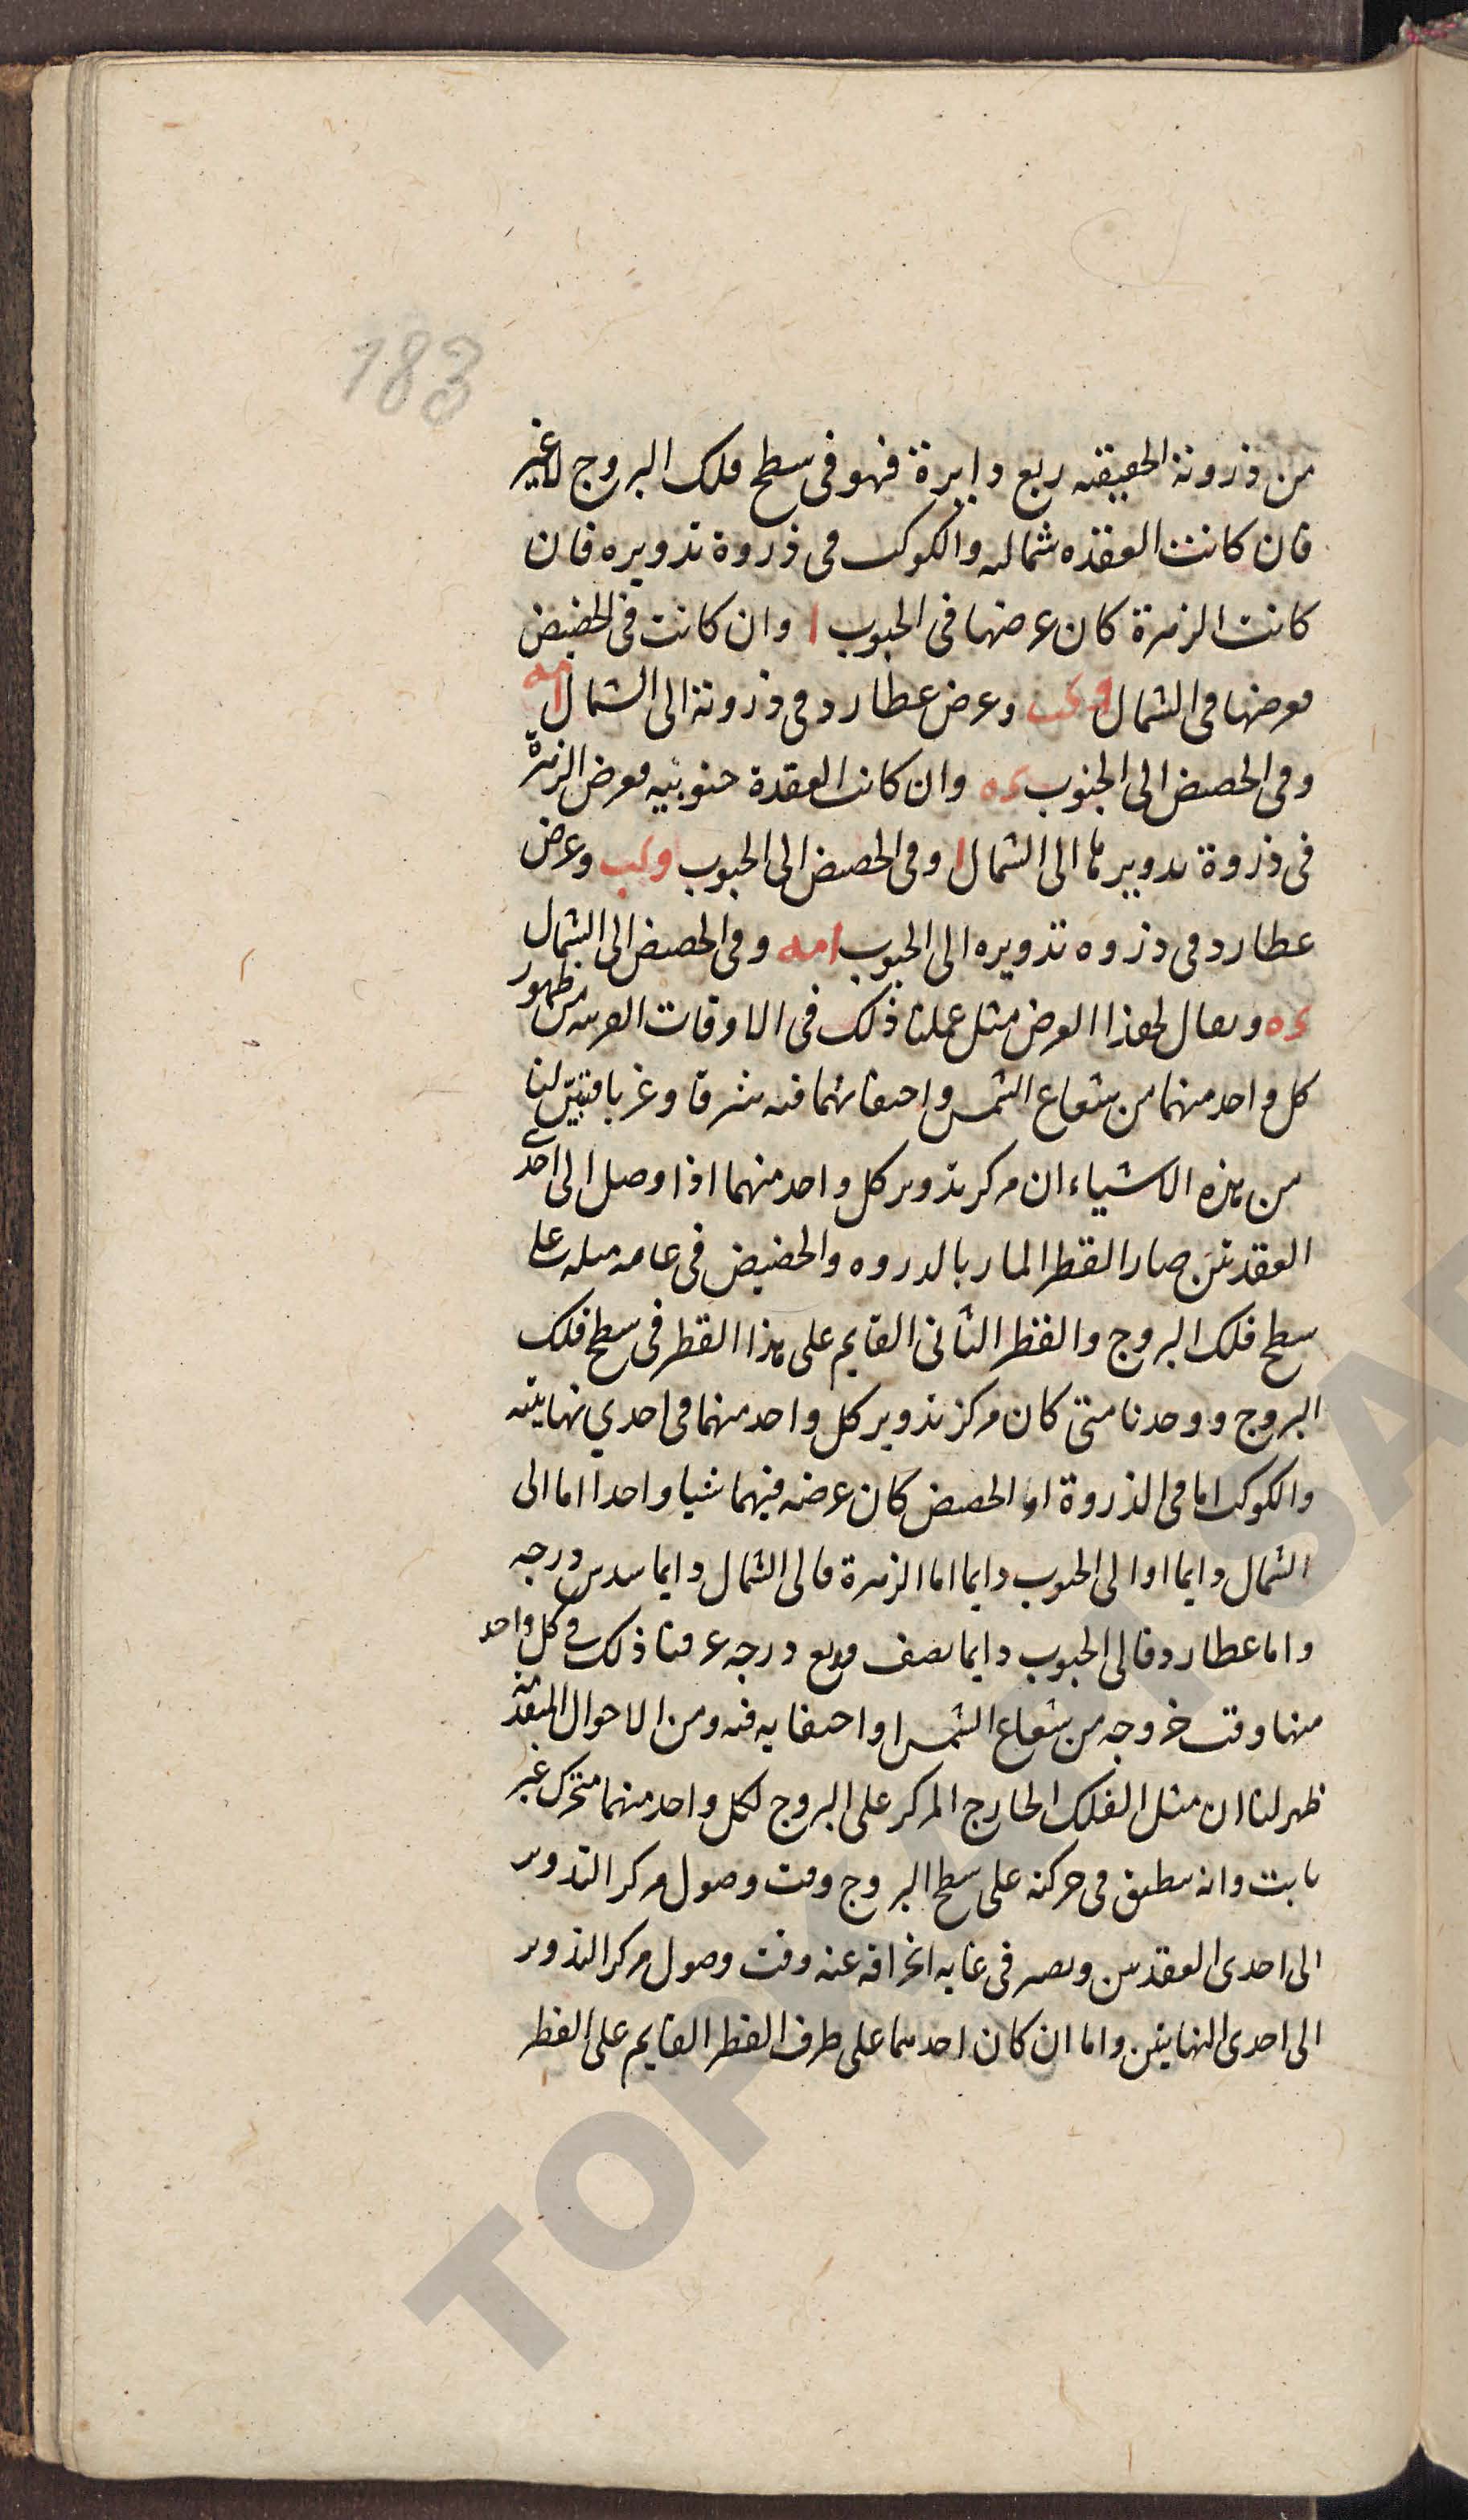 183
من ذروته الحقيقه ربع دايرة فهو فى سطح فلك البروج لا غير
فان كانت العقده شماليه والكوكب فى ذروة تدويره فان
كانت الزهرة كان عرضها فى الجنوب ا وان كانت فى الحضيض
فعرضها فى الشمال و كب وعرض عطارد فى ذروته الى الشمال ا مه
وفى الحضيض الى الجنوب د ه وان كانت العقدة جنوبيه فعرض الزهرة
فى ذروة تدويرها الى الشمال ا وفى الحضيض الى الجنوب و كب وعرض
عطارد فى ذروه تدويره الى الجنوب ا مه وفى الحضيض الى الشمال
د ه ويقال لهذا العرض مثل عملنا ذلك فى الاوقات القريبه من ظهور
كل واحد منهما من شعاع الشمس واختفائهما فيه شرقا وغربا فتبيّن لنا
من هذه الاشياء ان مركز تدوير كل واحد منهما اذا وصل الى احدى
العقدتين صار القطر المار بالذروه والحضيض فى غايه ميله على
سطح فلك البروج والقطر الثانى القايم على هذا القطر فى سطح فلك
البروج ووجدنا متى كان مركز تدوير كل واحد منهما فى احدي نهايتيه
والكوكب اما فى الذروة او الحضيض كان عرضه فيهما شيا واحدا اما الى
الشمال دايما او الى الجنوب دايما اما الزهرة فالى الشمال دايما سدس درجه
واما عطارد فالى الجنوب دايما نصف وربع درجه عرفنا ذلك فى كل واحد
منها وقت خروجه من شعاع الشمس او اختفايه فيه ومن الاحوال المتقدمة
ظهر لنا ان مثل الفلك الخارج المركز على البروج لكل واحد منهما متحرك غير
ثابت وانه ينطبق فى حركته على سطح البروج وقت وصول مركز التدوير
الى احدى العقدتين ويصير فى غايه انحرافه عنه وقت وصول مركز التدوير
الى احدى النهايتين واما ان كان احدهما على طرف القطر القايم على القطر
TOPKAPI SARA